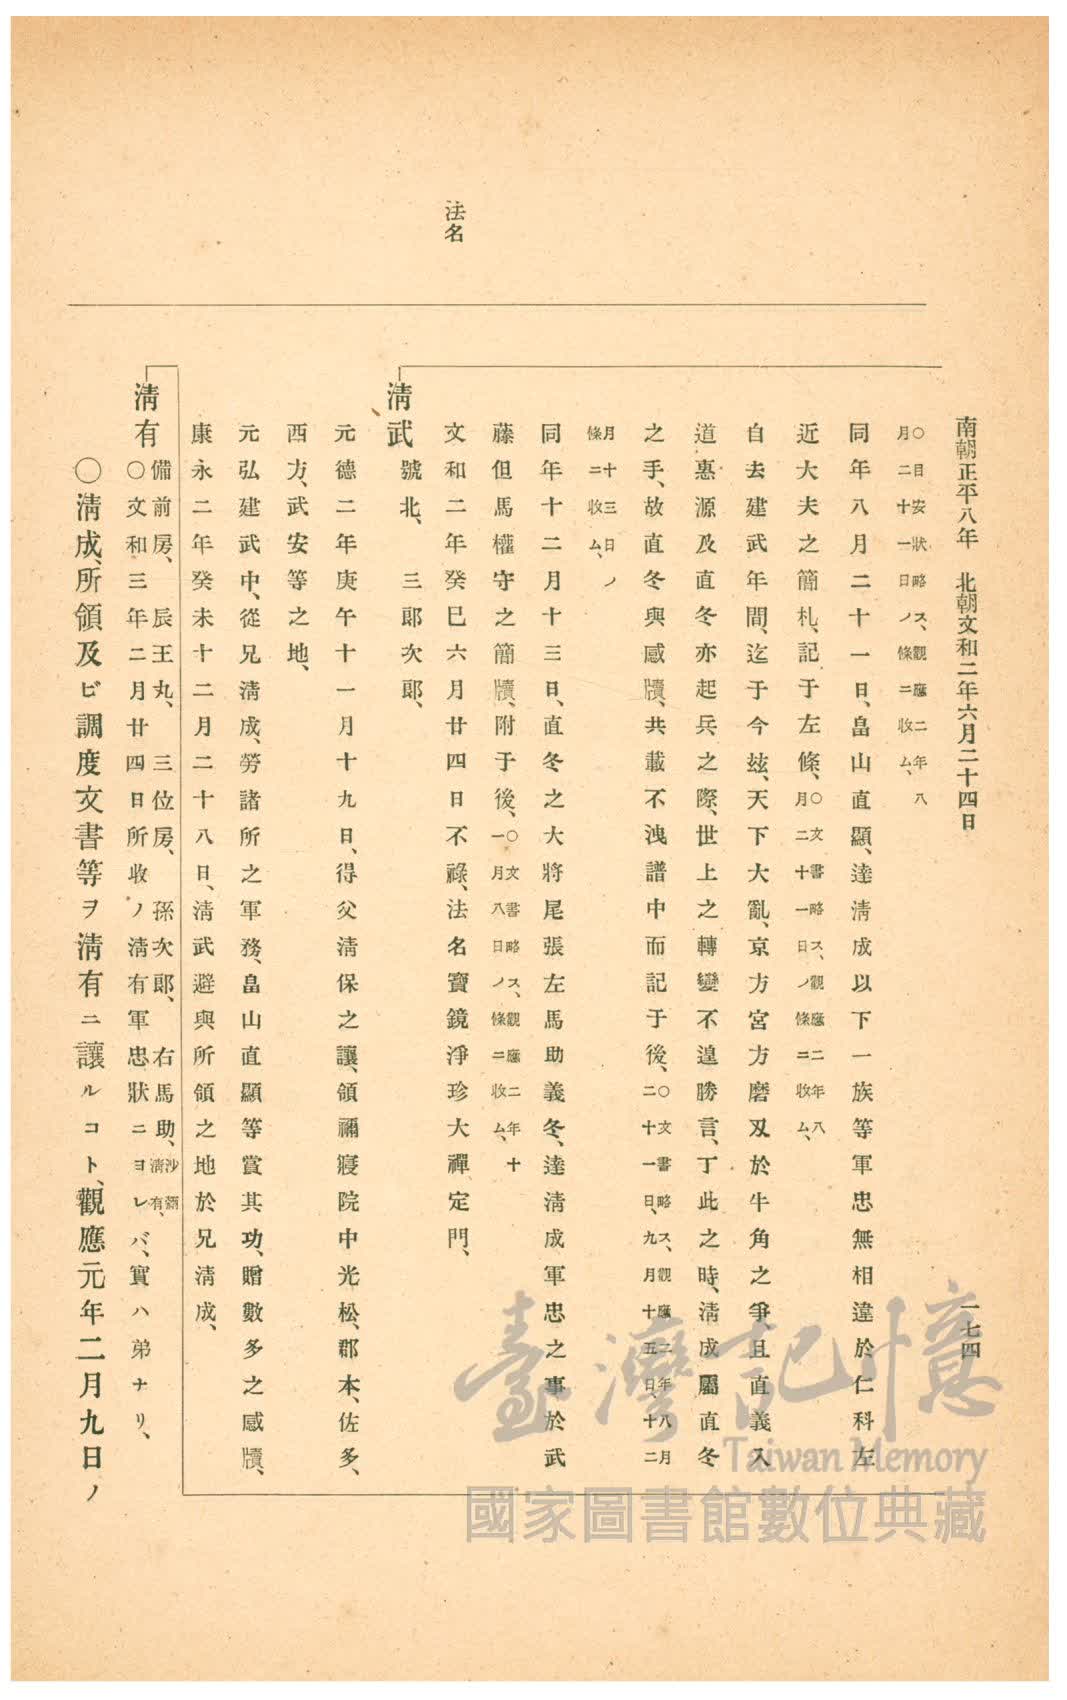 南朝正平八年　北朝文和二年六月二十四日
一七四
○目安狀略ス、觀應二年八
月二十一日ノ條ニ收ム、
同年八月二十一日、畠山直顯、達淸成以下一族等軍忠無相違於仁科左
近大夫之簡札、記于左條、○文書略ス、觀應二年八月二十一日ノ條ニ收ム、
自去建武年間、迄于今玆、天下大亂、京方宮方磨刄於牛角之爭、且直義入
道惠源及直冬亦起兵之際、世上之轉變不遑勝言、丁此之時、淸成屬直冬
之手、故直冬與感牘、共載不洩譜中而記于後、○文書略ス、觀應二年八月二十一日、九月十五日、十二
月十三日ノ
條ニ收ム、
同年十二月十三日、直冬之大將尾張左馬助義冬、達淸成軍忠之事於武
藤但馬權守之簡牘、附于後、○文書略ス、觀應二年十一月八日ノ條ニ收ム、
法名
文和二年癸巳六月廿四日不祿、法名寶鏡淨珍大禪定門、
淸武　號北、　三郞次郞、
元德二年庚午十一月十九日、得父淸保之讓、領禰寢院中光松、郡本、佐多、
西方、武安等之地、
元弘建武中、從兄淸成、勞諸所之軍務、畠山直顯等賞其功、贈數多之感牘、
康永二年癸未十二月二十八日、淸武避與所領之地於兄淸成、
淸有　備前房、　辰王丸、　三位房、　孫次郞、　右馬助、沙彌淸有、
○文和三年二月廿四日所收ノ淸有軍忠狀ニヨレバ、實ハ弟ナリ、
○淸成、所領及ビ調度文書等ヲ淸有ニ讓ルコト、觀應元年二月九日ノ
臺灣記憶
Taiwan Memory
國家圖書館數位典藏